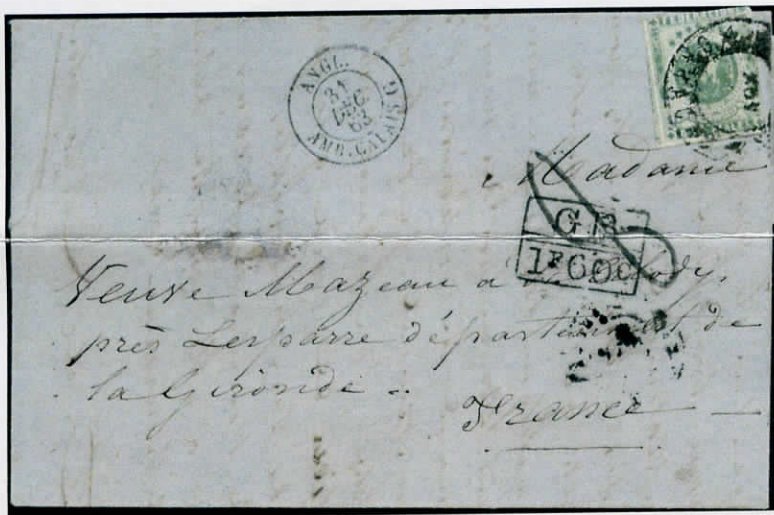 ANGL.
31
DEC.
63
AMB. CALAIS G
CORREOS
Madame
GB
1F60c
Veuve Mazeau à
près Lesparre département de
la Gironde -
France